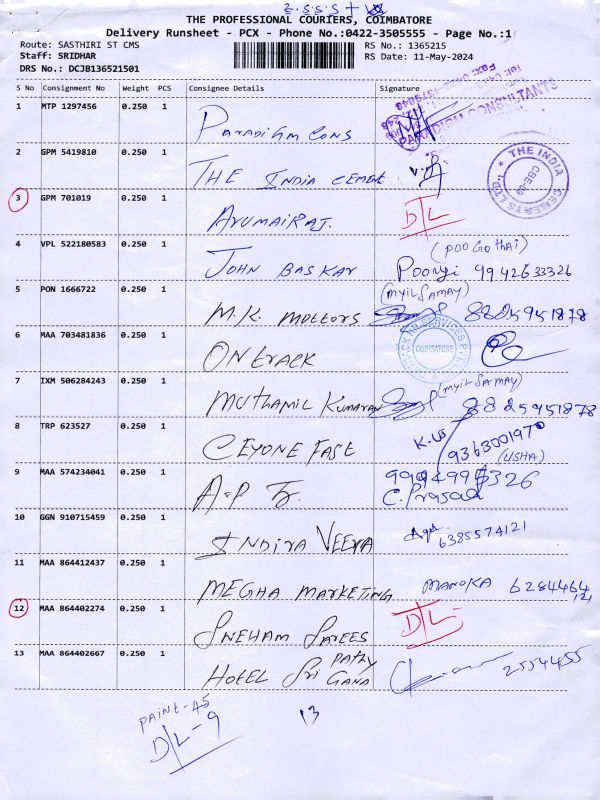 THE PROFESSIONAL COURIERS, COIMBATORE
Delivery Runsheet - PCX - Phone No.:0422-3505555 - Page No.:1
Route: SASTHIRI ST CMS
RS No.: 1365215
Staff: SRIDHAR
RS Date: 11-May-2024
DRS No.: DCJB136521501
S No Consignment No Weight PCS Consignee Details Signature
1 MTP 1297456 0.250 1 PARADIGM CONS
PARADIGM CONSULTANTS
2 GPM 5419810 0.250 1 THE INDIA CEMENT
THE INDIA CEMENTS LTD. CBE-09
3 GPM 701019 0.250 1 ARUMAIRAJ. D/L
4 VPL 522180583 0.250 1 JOHN BASKAR (POOGOthai)
9942633326
5 PON 1666722 0.250 1 M.K. MOTTORS (MYILSAMAY)
8825951878
6 MAA 703481836 0.250 1 ONTRACK
COIMBATORE
7 IXM 506284243 0.250 1 MUTHAMIL KUMARAN (MYILSAMAY)
8825951878
8 TRP 623527 0.250 1 CEYONE FASE
9363001970
(USHA)
9 MAA 574234041 0.250 1
C. Prasad
10 GGN 910715459 0.250 1 INDIRA VEERA
6385574121
11 MAA 864412437 0.250 1 MEGHA MARKETING MANOKA 6284464
121
12 MAA 864402274 0.250 1 SNEHAM SAREES D/L
13 MAA 864402667 0.250 1 HOTEL SRI GANA PATHY 2554455
PAINT-45
D/L-9
13